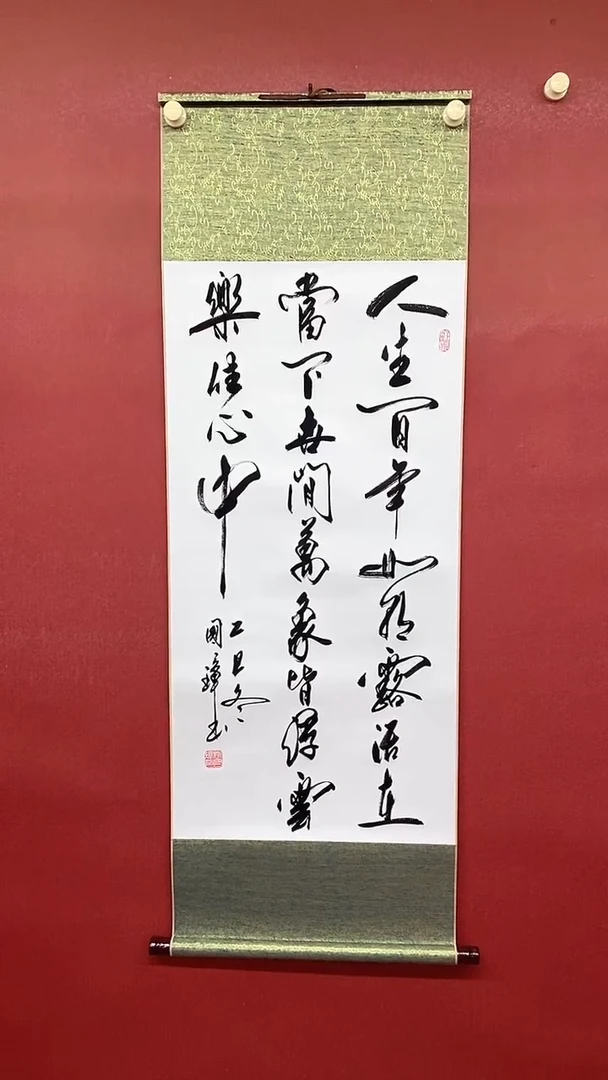 人生百年如朝露活在
當下世間萬象皆浮雲
樂住心中
乙巳冬
國璋书